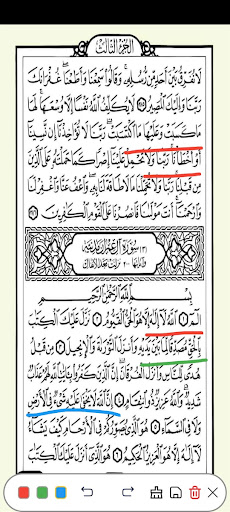 الجزء الثالث
لا نفرق بين احد من رسله وقالوا سمعنا واطعنا غفرانك
ربنا واليك المصير لا يكلف الله نفسا الا وسعها لها
ما كسبت وعليها ما اكتسبت ربنا لا تؤاخذنا ان نسينا
او اخطأنا ربنا ولا تحمل علينا اصرا كما حملته على الذين
من قبلنا ربنا ولا تحملنا ما لا طاقة لنا به واعف عنا واغفر لنا
وارحمنا انت مولينا فانصرنا على القوم الكافرين
بسم الله الرحمن الرحيم
الم الله لا اله الا هو الحي القيوم نزل عليك الكتاب
بالحق مصدقا لما بين يديه وانزل التورية والانجيل من قبل
هدى للناس وانزل الفرقان ان الذين كفروا بايات الله لهم عذاب
شديد والله عزيز ذو انتقام ان الله لا يخفى عليه شيء في الارض
ولا في السماء هو الذي يصوركم في الارحام كيف يشاء
لا اله الا هو العزيز الحكيم هو الذي انزل عليك الكتاب